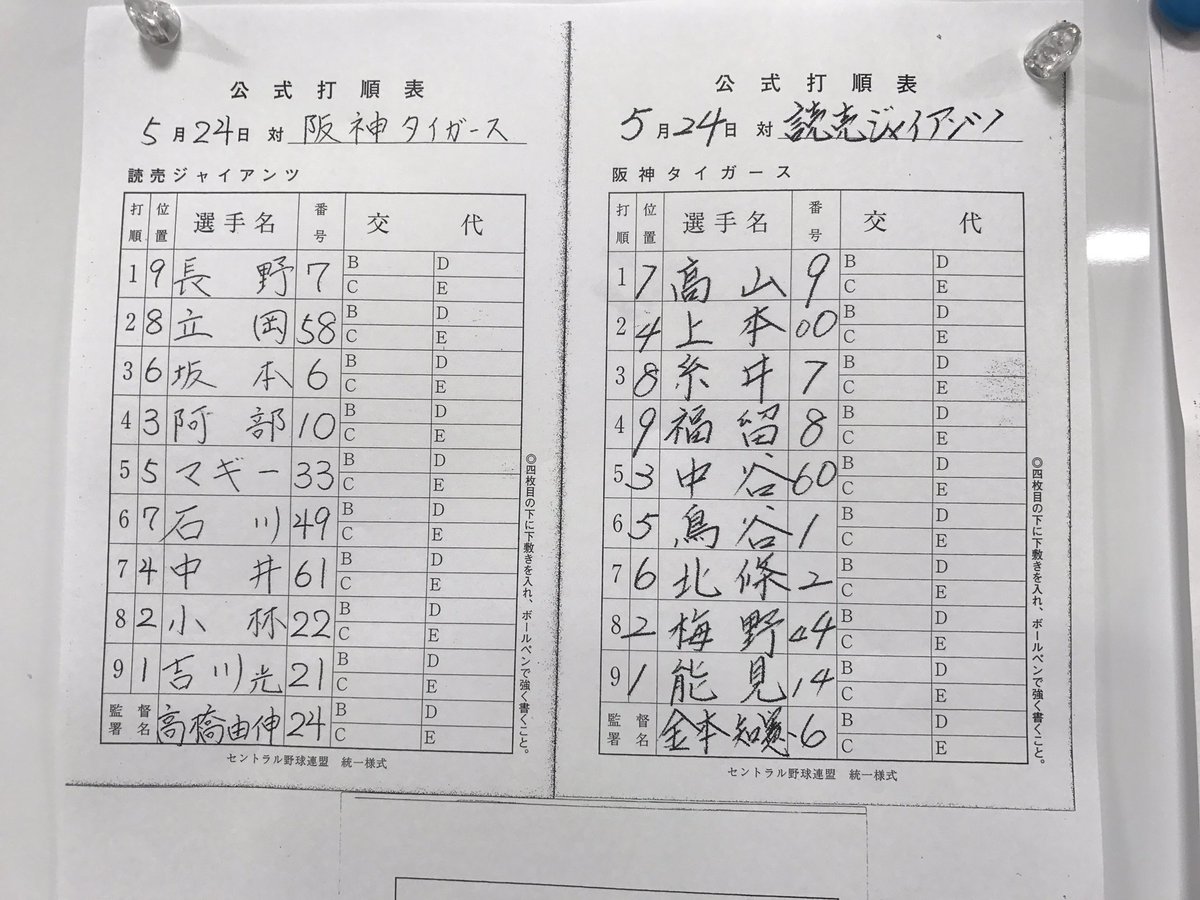 公式打順表
5月24日 対 阪神タイガース
読売ジャイアンツ
打順 位置 選手名 番号 交代
1 9 長野 7 B D
C E
2 8 立岡 58 B D
C E
3 6 坂本 6 B D
C E
4 3 阿部 10 B D
C E
5 5 マギー 33 B D
C E
6 7 石川 49 B D
C E
7 4 中井 61 B D
C E
8 2 小林 22 B D
C E
9 1 吉川光 21 B D
C E
監督署名 高橋由伸 24 B D
C E
◎四枚目の下に下敷きを入れ、ボールペンで強く書くこと。
セントラル野球連盟 統一様式
公式打順表
5月24日 対 読売ジャイアンツ
阪神タイガース
打順 位置 選手名 番号 交代
1 7 髙山 9 B D
C E
2 4 上本 00 B D
C E
3 8 糸井 7 B D
C E
4 9 福留 8 B D
C E
5 3 中谷 60 B D
C E
6 5 鳥谷 1 B D
C E
7 6 北條 2 B D
C E
8 2 梅野 44 B D
C E
9 1 能見 14 B D
C E
監督署名 金本知憲 6 B D
C E
◎四枚目の下に下敷きを入れ、ボールペンで強く書くこと。
セントラル野球連盟 統一様式